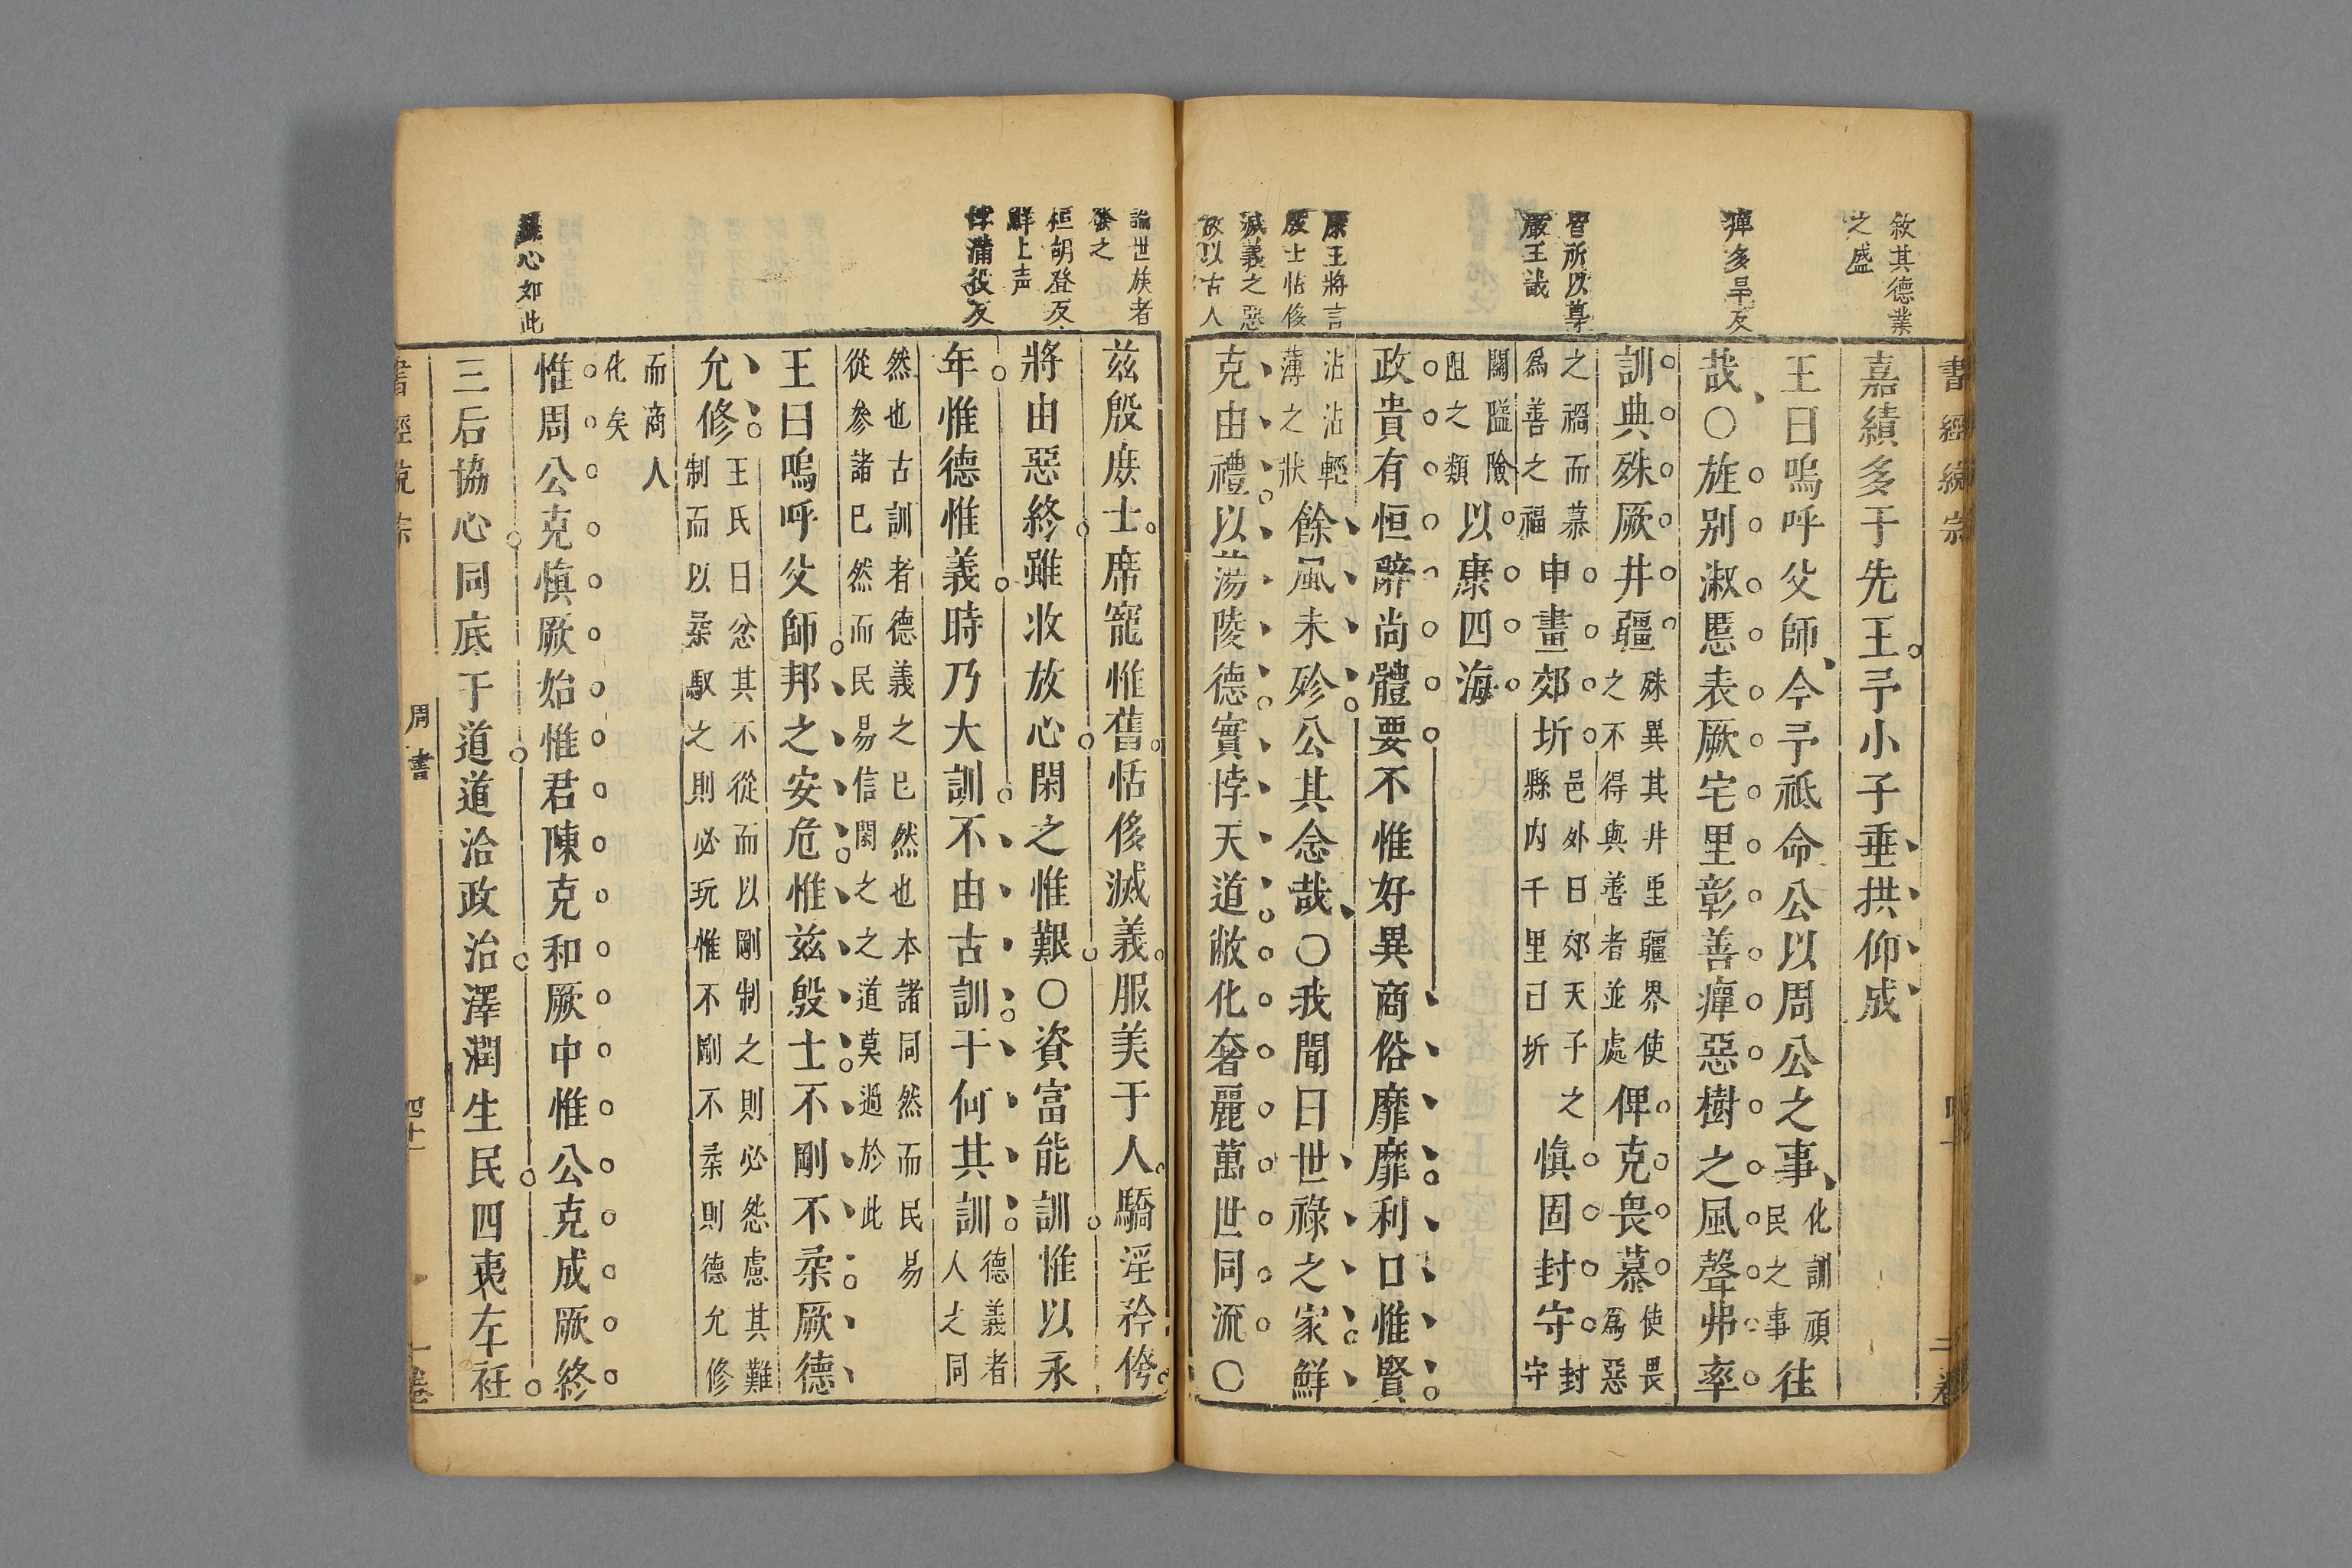 敘其德業
之盛
癉多旱反
皆所以尊
嚴王畿
康王將言
殷士怙侈
滅義之惡
故以古人
書經統宗
二卷
嘉績多于先王予小子垂拱仰成
王曰嗚呼父師今予祗命公以周公之事化訓頑
民之事往
哉○旌别淑慝表厥宅里彰善癉惡樹之風聲弗率
訓典殊厥井疆殊異其井里疆界使
之不得與善者並處俾克畏慕使畏
爲惡
之禍而慕
爲善之福申畫郊圻邑外曰郊天子之
縣内千里曰圻慎固封守封
守
關隘險
阻之類以康四海
政貴有恒辭尚體要不惟好異商俗靡靡利口惟賢
沾沾輕
薄之狀餘風未殄公其念哉○我聞曰世祿之家鮮
克由禮以蕩陵德實悖天道敝化奢麗萬世同流○
論世族者
發之
恒胡登反
鮮上声
悖蒲役反
心如此
兹殷庶士席寵惟舊怙侈滅義服美于人驕淫矜侉
將由惡終雖收放心閑之惟艱○資富能訓惟以永
年惟德惟義時乃大訓不由古訓于何其訓德義者
人之同
然也古訓者德義之已然也本諸同然而民易
從參諸已然而民易信閑之之道莫過於此
王曰嗚呼父師邦之安危惟兹殷士不剛不柔厥德
允修王氏曰忿其不從而以剛制之則必怨慮其難
制而以柔馭之則必玩惟不剛不柔則德允修
而商人
化矣
惟周公克慎厥始惟君陳克和厥中惟公克成厥終
三后協心同底于道道洽政治澤潤生民四夷左衽
書經統宗
周書
四十一